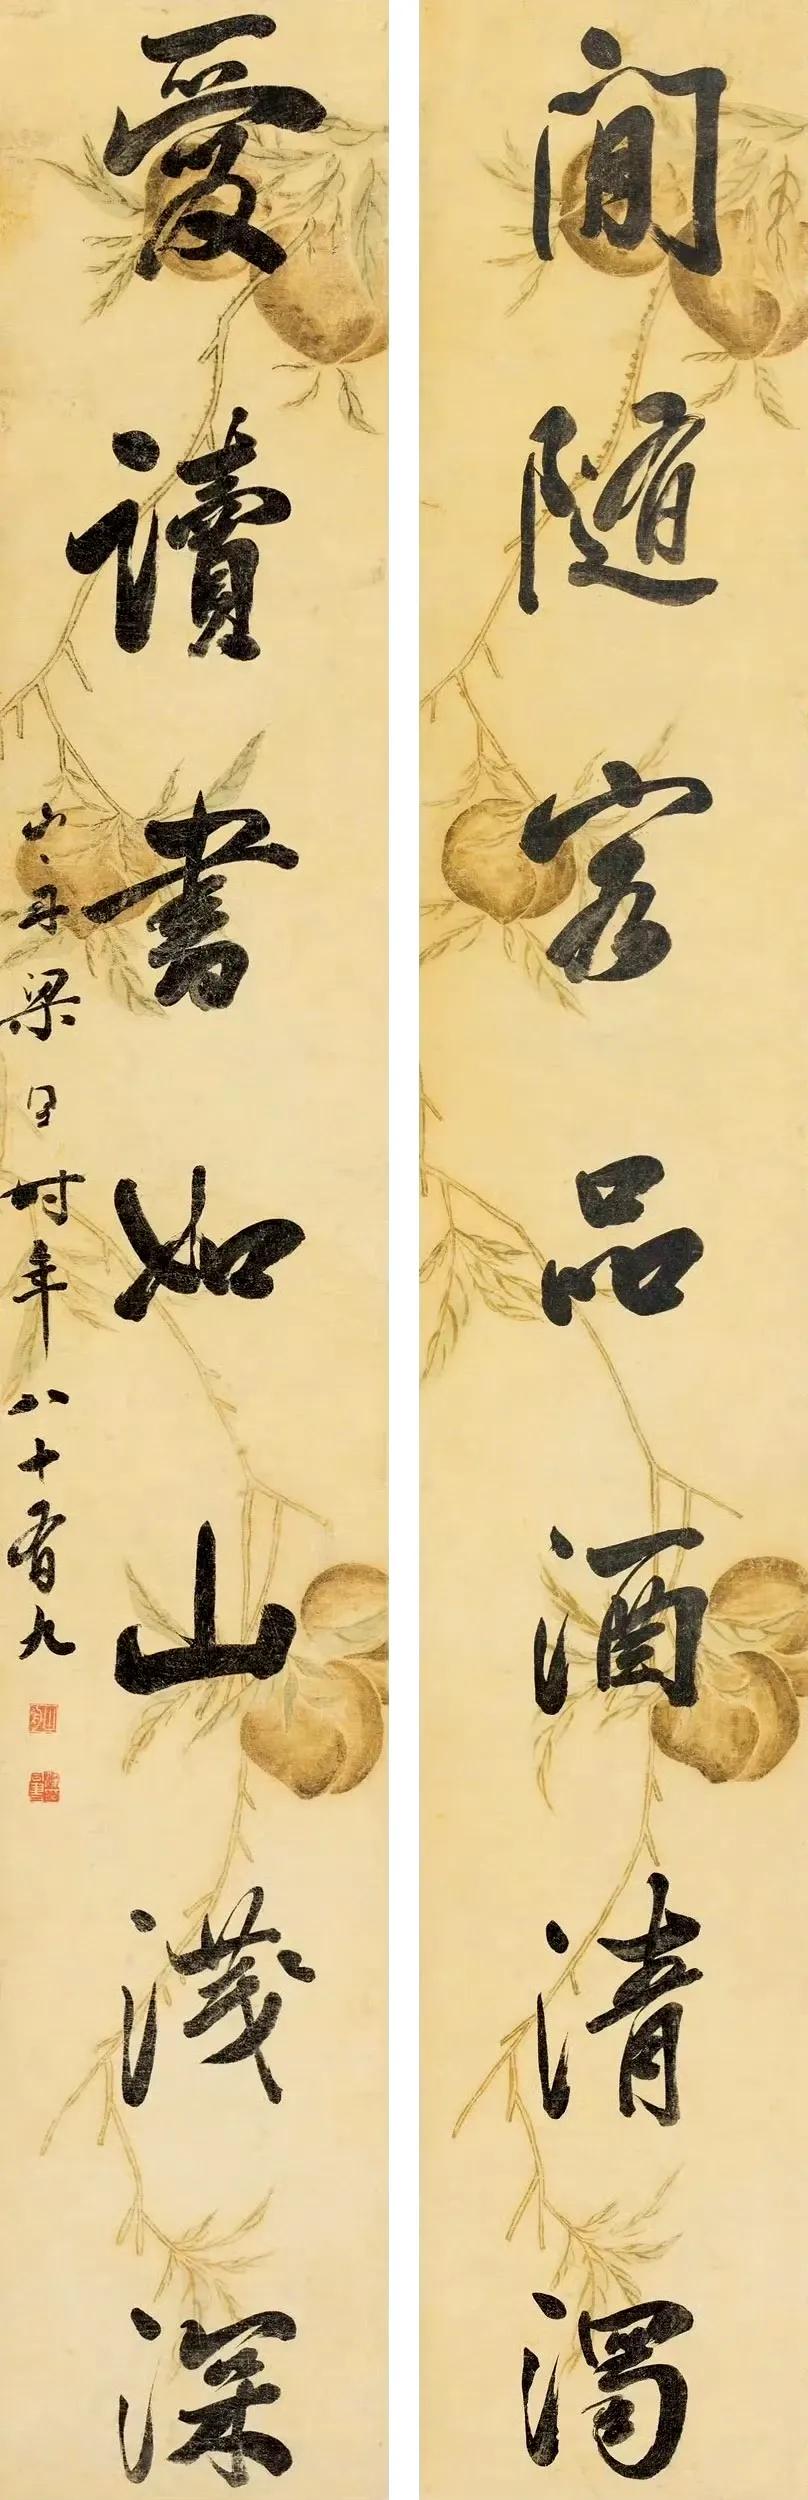 閒隨客品酒清濁
愛讀書如山淺深
山舟梁同書時年八十有九